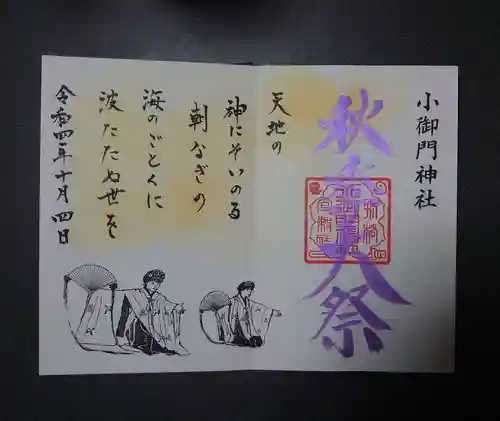 小御門神社
秋季大祭
天地の
神にそいのる
朝なぎの
海のごとくに
波たたぬ世を
令和四年十月四日